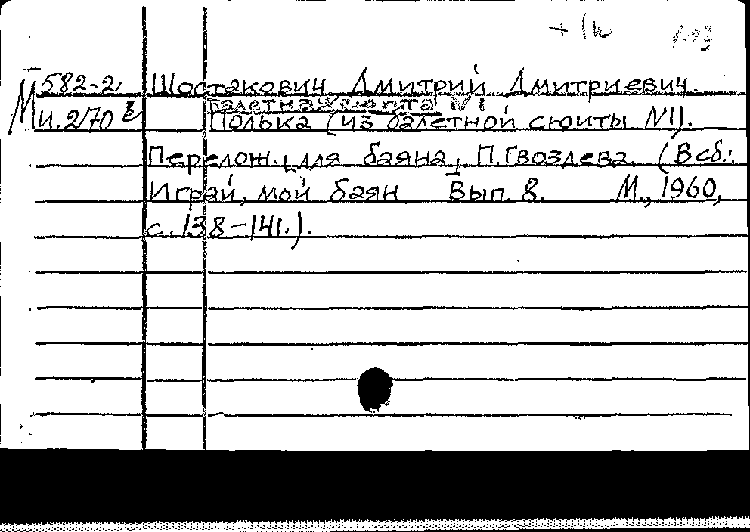 М 582-2 Шостакович Дмитрий Дмитриевич.
Балетная сюита №1
и.2/70 Полька (из балетной сюиты №1).
Перелож. для баяна П.Гвоздева. (В сб.:
Играй, мой баян Вып. 8. М., 1960,
с. 138-141.).